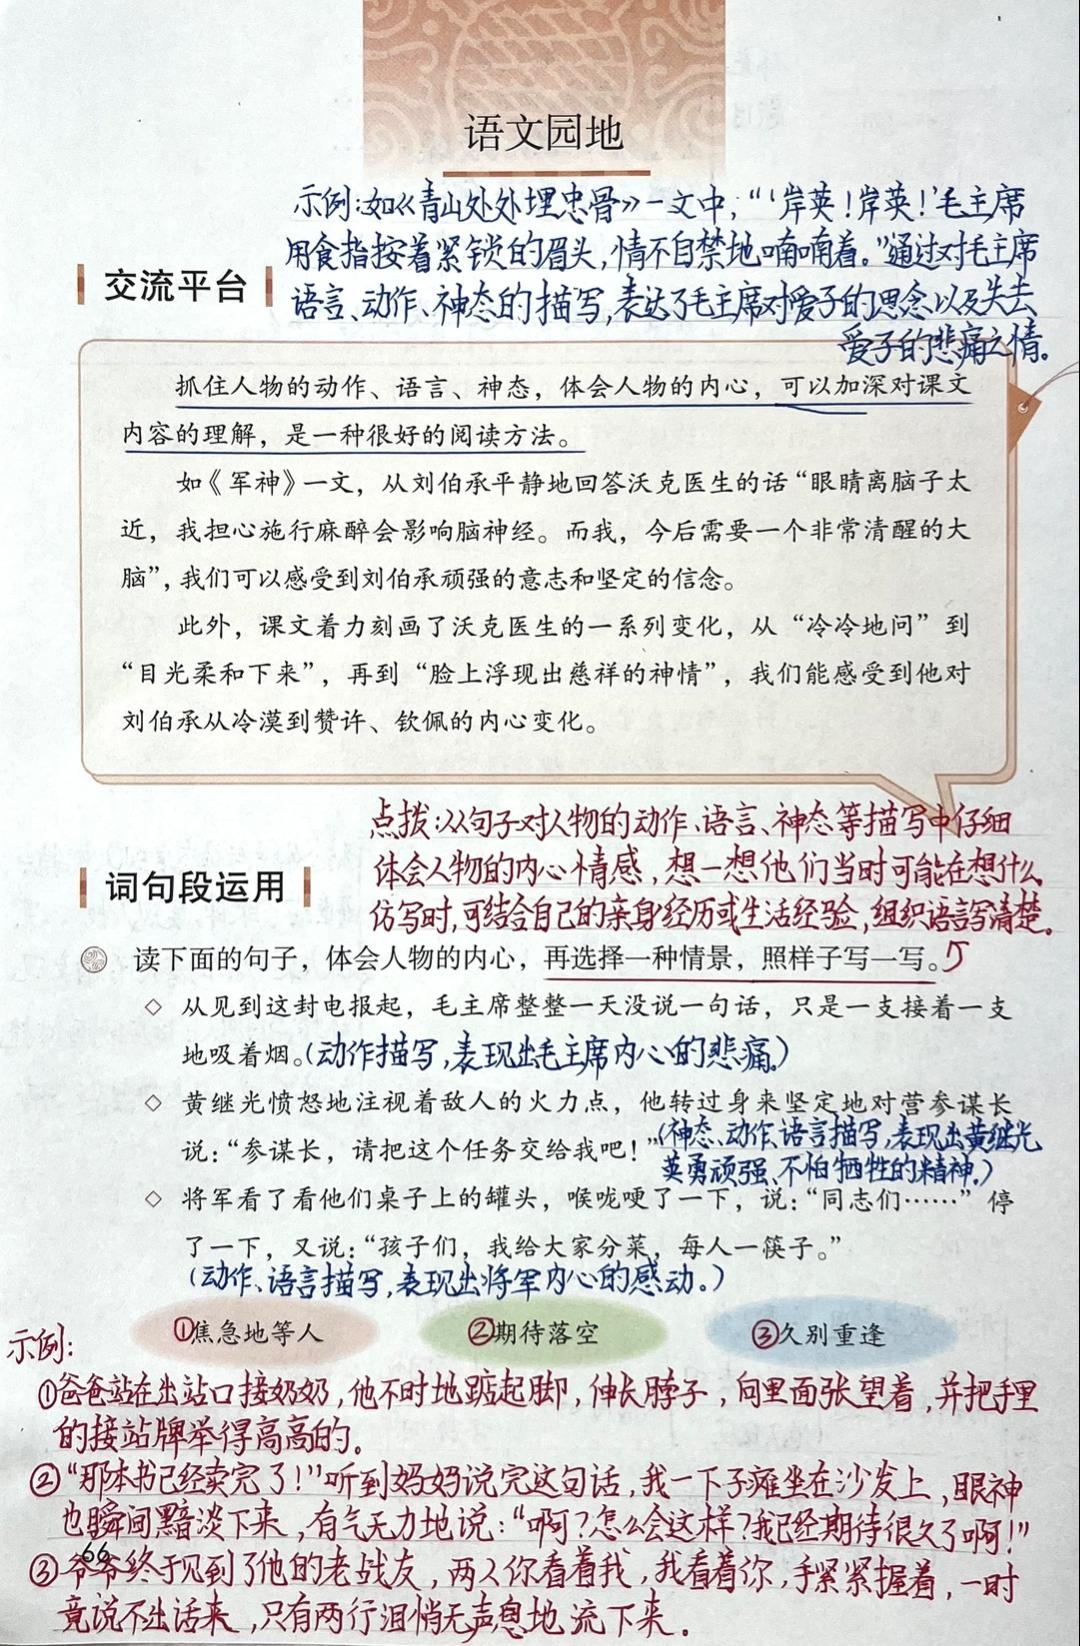 语文园地
示例:如《青山处处埋忠骨》一文中,“‘岸英!岸英!’毛主席
用食指按着紧锁的眉头,情不自禁地喃喃着。”通过对毛主席
语言、动作、神态的描写,表达了毛主席对爱子的思念以及失去
爱子的悲痛之情。
交流平台
抓住人物的动作、语言、神态,体会人物的内心,可以加深对课文
内容的理解,是一种很好的阅读方法。
如《军神》一文,从刘伯承平静地回答沃克医生的话“眼睛离脑子太
近,我担心施行麻醉会影响脑神经。而我,今后需要一个非常清醒的大
脑”,我们可以感受到刘伯承顽强的意志和坚定的信念。
此外,课文着力刻画了沃克医生的一系列变化,从“冷冷地问”到
“目光柔和下来”,再到“脸上浮现出慈祥的神情”,我们能感受到他对
刘伯承从冷漠到赞许、钦佩的内心变化。
点拨:从句子对人物的动作、语言、神态等描写中仔细
体会人物的内心情感,想一想他们当时可能在想什么
仿写时,可结合自己的亲身经历或生活经验,组织语言写清楚。
词句段运用
读下面的句子,体会人物的内心,再选择一种情景,照样子写一写。
◇ 从见到这封电报起,毛主席整整一天没说一句话,只是一支接着一支
地吸着烟。(动作描写,表现出毛主席内心的悲痛。)
◇ 黄继光愤怒地注视着敌人的火力点,他转过身来坚定地对营参谋长
说:“参谋长,请把这个任务交给我吧!”(神态、动作、语言描写,表现出黄继光
英勇顽强、不怕牺牲的精神。)
◇ 将军看了看他们桌子上的罐头,喉咙哽了一下,说:“同志们……”停
了一下,又说:“孩子们,我给大家分菜,每人一筷子。”
(动作、语言描写,表现出将军内心的感动。)
①焦急地等人 ②期待落空 ③久别重逢
示例:
①爸爸站在出站口接奶奶,他不时地踮起脚,伸长脖子,向里面张望着,并把手里
的接站牌举得高高的。
②“那本书已经卖完了!”听到妈妈说完这句话,我一下子瘫坐在沙发上,眼神
也瞬间黯淡下来,有气无力地说:“啊?怎么会这样?我已经期待很久了啊!”
66
③爷爷终于见到了他的老战友,两人你看着我,我看着你,手紧紧握着,一时
竟说不出话来,只有两行泪悄无声息地流下来。